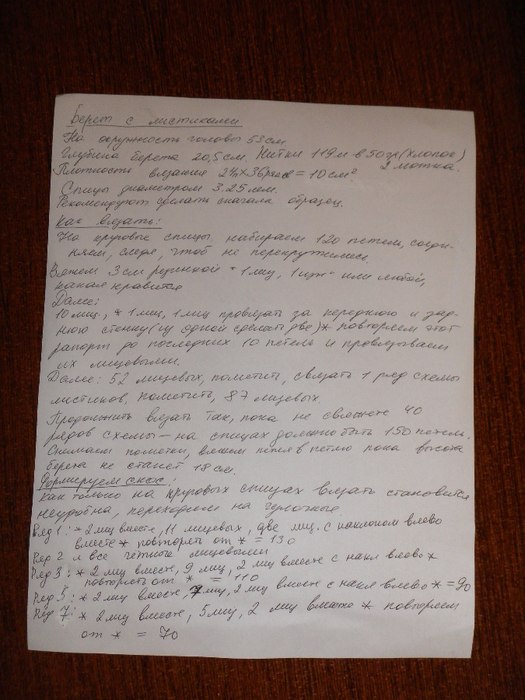 Берет с листиками
На окружность головы 53 см
Глубина берета 20,5 см. Нитки 119 м в 50 гр (хлопок)
2 мотка.
Плотность вязания 24п х 36рядов = 10 см²
Спицы диаметром 3.25 мм.
Рекомендуют сделать сначала образец.
Как вязать:
На круговые спицы набираем 120 петель, соеди-
няем, следя, чтоб не перекрутились.
Вяжем 3 см резинкой * 1 лиц, 1 изн * или любой,
какая нравится
Далее:
10 лиц, * 1 лиц, 1 лиц провязать за переднюю и зад-
нюю стенку (из одной сделать две) * повторяем этот
рапорт до последних 10 петель и провязываем
их лицевыми.
Далее: 52 лицевых, пометить, связать 1 ряд схемы
листиков, пометить, 87 лицевых
Продолжить вязать так, пока не свяжете 40
рядов схемы — на спицах должно быть 150 петель.
Снимаем пометки, вяжем петля в петлю пока высота
берета не станет 18 см.
Формируем снос:
Как только на круговых спицах вязать становится
неудобно, переходим на чулочные
Ряд 1: * 2 лиц вместе, 11 лицевых, две лиц. с наклоном влево
вместе * повторять от * = 130
Ряд 2 и все четные лицевыми
Ряд 3: * 2 лиц вместе, 9 лиц, 2 лиц вместе с накл влево *
повторять от * = 110
Ряд 5: * 2 лиц вместе, 7 лиц, 2 лиц вместе с накл влево * = 90
Ряд 7: * 2 лиц вместе, 5 лиц, 2 лиц вместе * повторяем
от * = 70